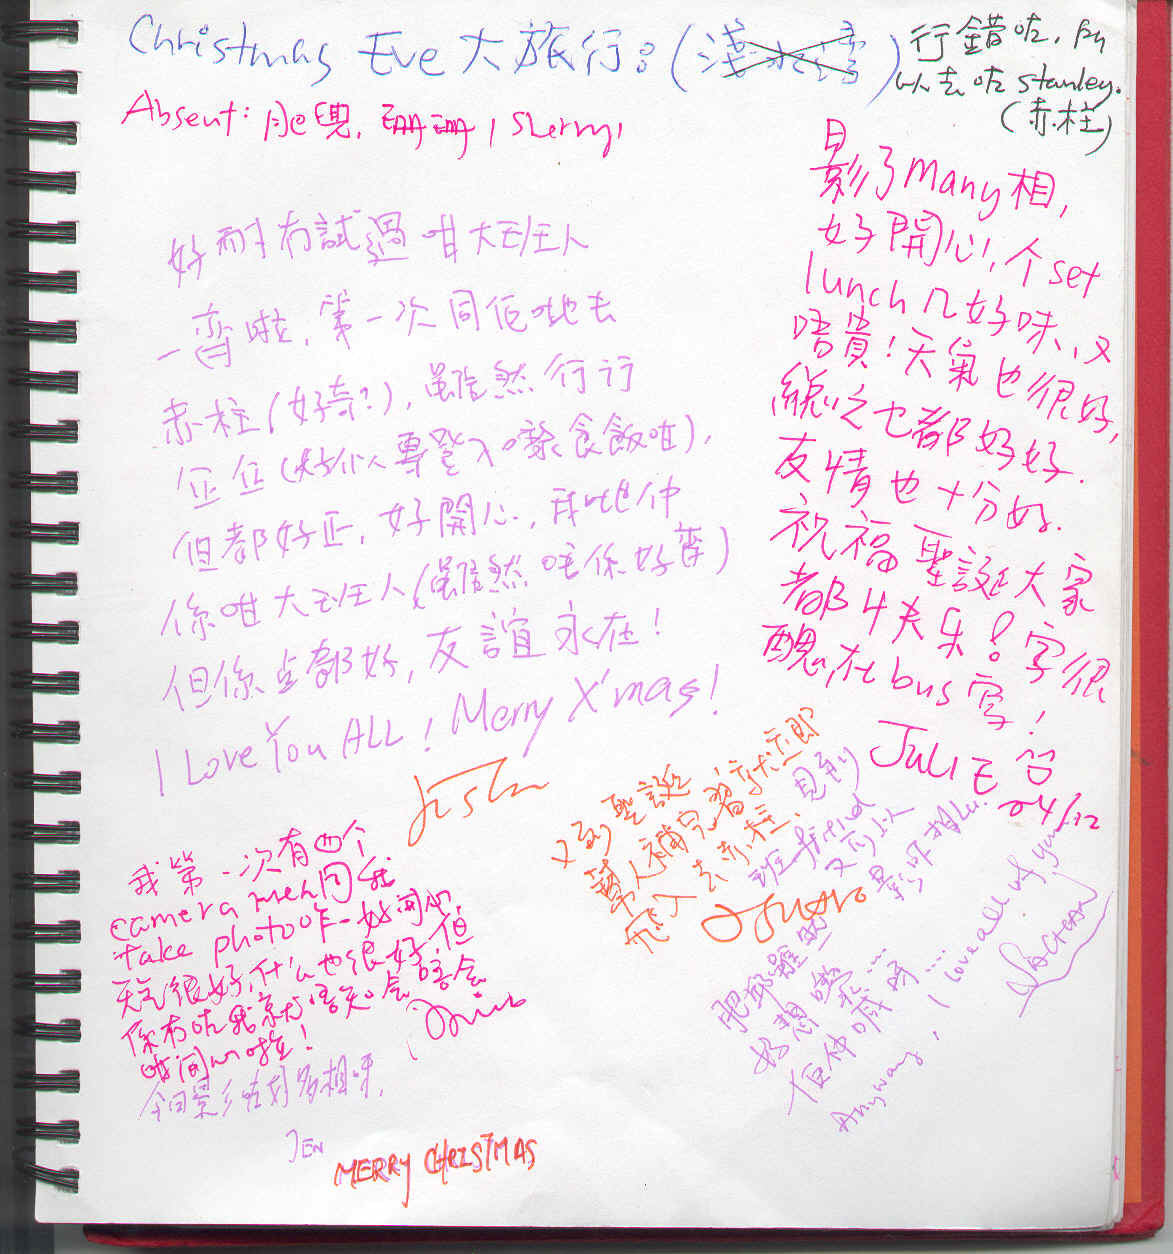 Christmas Eve 大旅行：(淺水灣)
行錯咗，所
以去咗 Stanley.
(赤柱)
Absent: 肥兒, 珊珊, Sherry,
好耐冇試過咁大班人
一齊啦，第一次同佢哋去
赤柱(好奇?)，雖然行行
企企(好似專登入嚟食飯咁)，
但都好正，好開心，我哋仲
係咁大班人(雖然唔係好齊)
但係点都好，友誼永在！
I Love You ALL! Merry X'mas!
影了many相，
好開心，个set
lunch几好味，又
唔貴！天氣也很好，
總之乜都好好．
友情也十分好．
祝福聖誕大家
都快乐！字很
醜，在bus寫！
JULIE
24/12
又到聖誕
幫人補完習就立即
飛入去赤柱．
見到
班friend
又可以
影吓相
我第一次有四个
camera men同我
take photo咋－好開心，
天气很好，什么也很好，但
係冇咗我就唔知會唔會
時間心啦！
今日影咗好多相呀，
JEN
MERRY CHRISTMAS
肥
好想
佢仲
Anyway, I love all of you